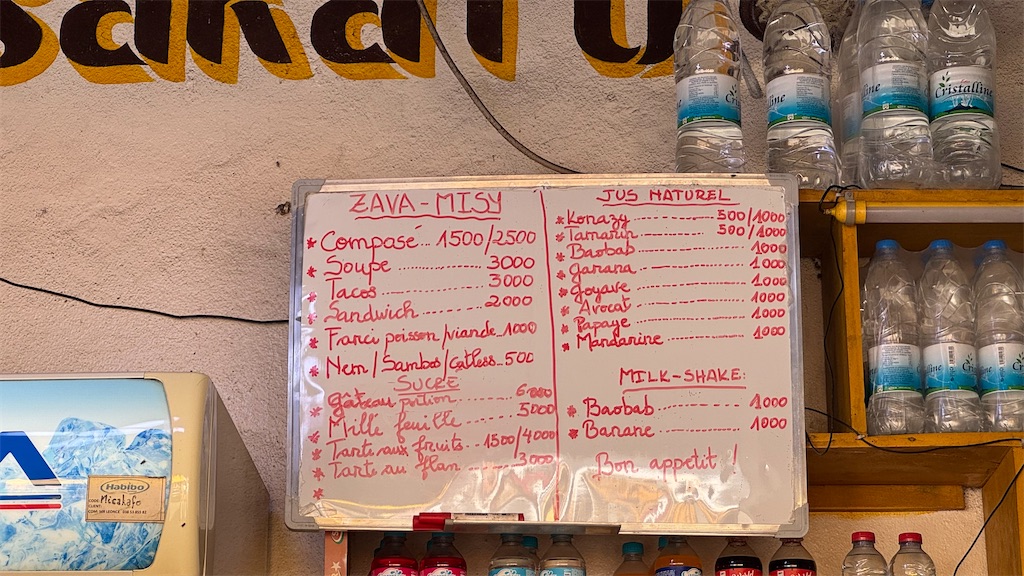 ZAVA-MISY
* Composé... 1500/2500
* Soupe ............ 3000
* Tacos ............ 3000
* Sandwich ......... 2000
* Franci poisson/viande..1000
* Nem/Sambos/Catless...500
SUCRE
* Gâteau portion ---
* Mille feuille --- 5000
* Tarte aux fruits -- 1500/4000
* Tarte au flan --- 3000
*
JUS NATUREL
* Konazy --- 500/1000
* Tamarin --- 500/1000
* Baobab --- 1000
* Garana --- 1000
* Goyave --- 1000
* Avocat --- 1000
* Papaye --- 1000
* Mandarine --- 1000
MILK-SHAKE:
* Baobab --- 1000
* Banane --- 1000
Bon appetit !
Cristalline
Habibo
CODE: Micakafo
CLIENT: